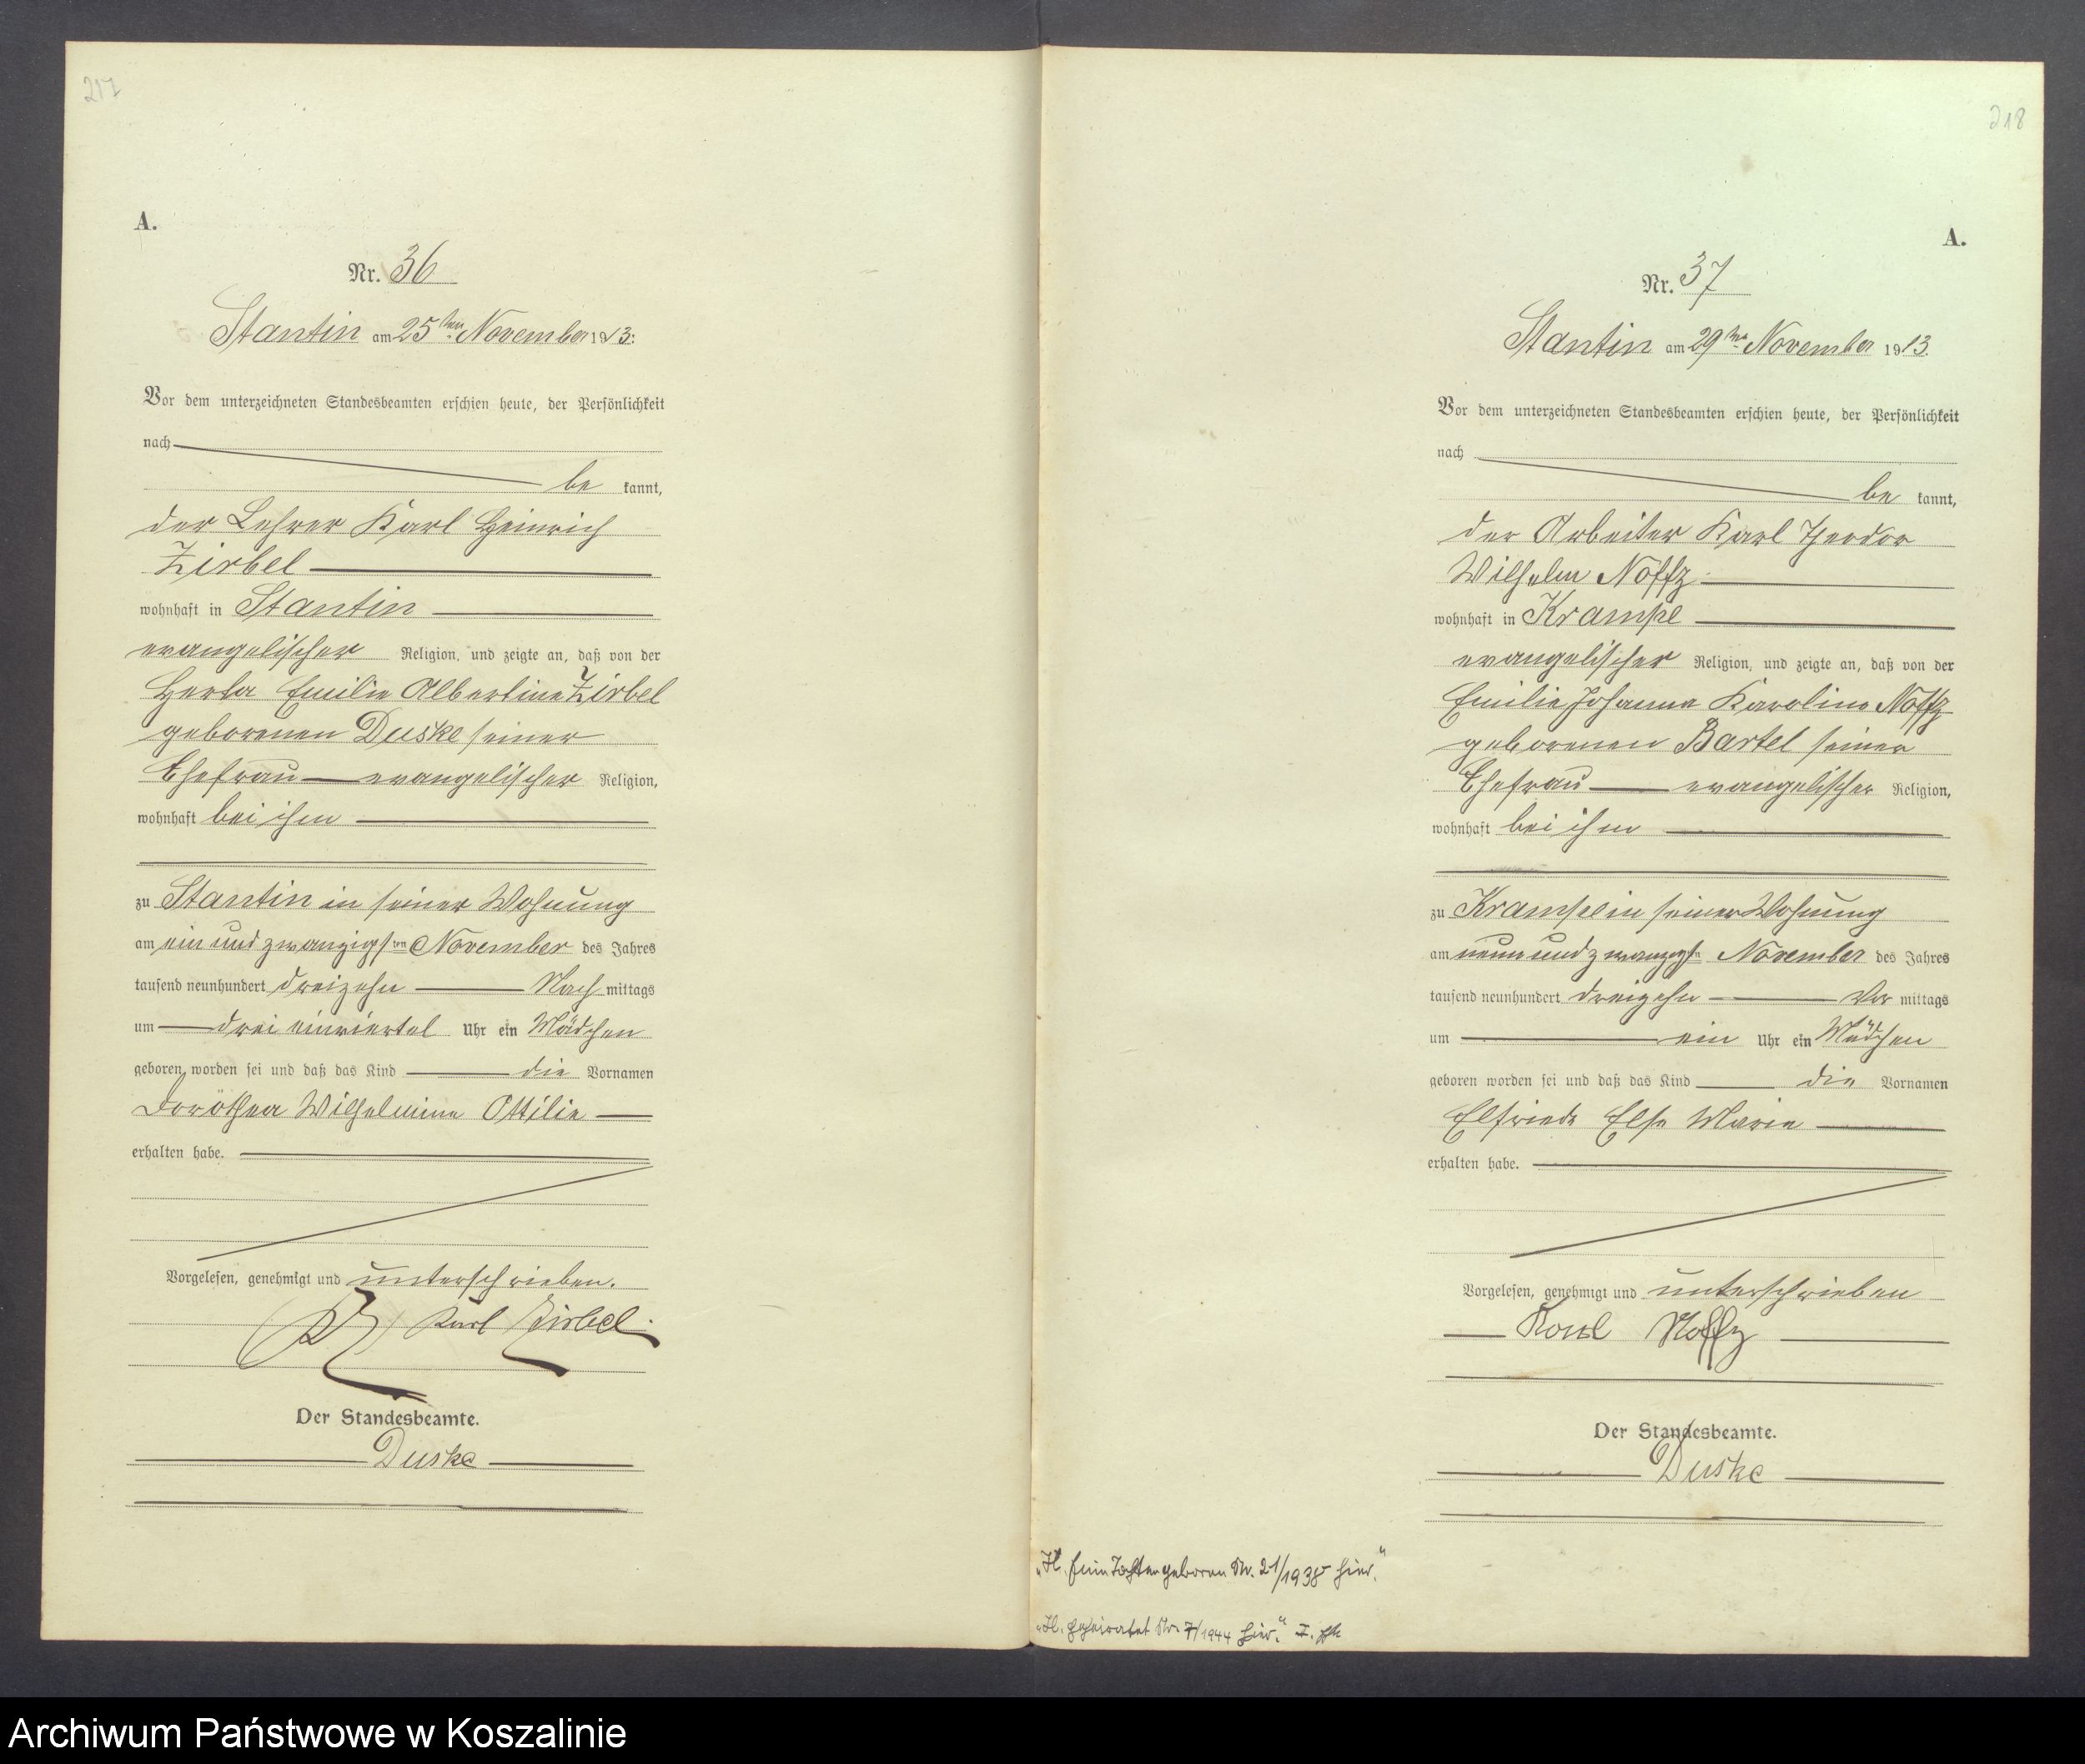 217
A.
Nr. 36
Stantin am 25ten November 1913:
Vor dem unterzeichneten Standesbeamten erschien heute, der Persönlichkeit
nach
be kannt,
der Lehrer Karl Heinrich
Zirbel
wohnhaft in Stantin
evangelischer Religion, und zeigte an, daß von der
Herta Emilie Albertine Zirbel
geborenen Duske seiner
Ehefrau evangelischer Religion,
wohnhaft bei ihm
zu Stantin in seiner Wohnung
am ein und zwanzigsten November des Jahres
tausend neunhundert dreizehn Nach mittags
um drei einviertel Uhr ein Mädchen
geboren worden sei und daß das Kind die Vornamen
Dorothea Wilhelmine Ottilie
erhalten habe.
Vorgelesen, genehmigt und unterschrieben.
Karl Zirbel.
Der Standesbeamte.
Duske
218
A.
Nr. 37
Stantin am 29ten November 1913.
Vor dem unterzeichneten Standesbeamten erschien heute, der Persönlichkeit
nach
be kannt,
der Arbeiter Karl Theodor
Wilhelm Noffz
wohnhaft in Krampe
evangelischer Religion, und zeigte an, daß von der
Emilie Johanna Karoline Noffz
geborenen Bartel seiner
Ehefrau evangelischer Religion,
wohnhaft bei ihm
zu Krampe in seiner Wohnung
am neun und zwanzigsten November des Jahres
tausend neunhundert dreizehn Vor mittags
um ein Uhr ein Mädchen
geboren worden sei und daß das Kind die Vornamen
Elfriede Else Marie
erhalten habe.
Vorgelesen, genehmigt und unterschrieben
Karl Noffz
Der Standesbeamte.
Duske
Eine Tochter geboren Nr. 21/1938 hier."
geheiratet Nr. 7/1944 hier."
Archiwum Państwowe w Koszalinie